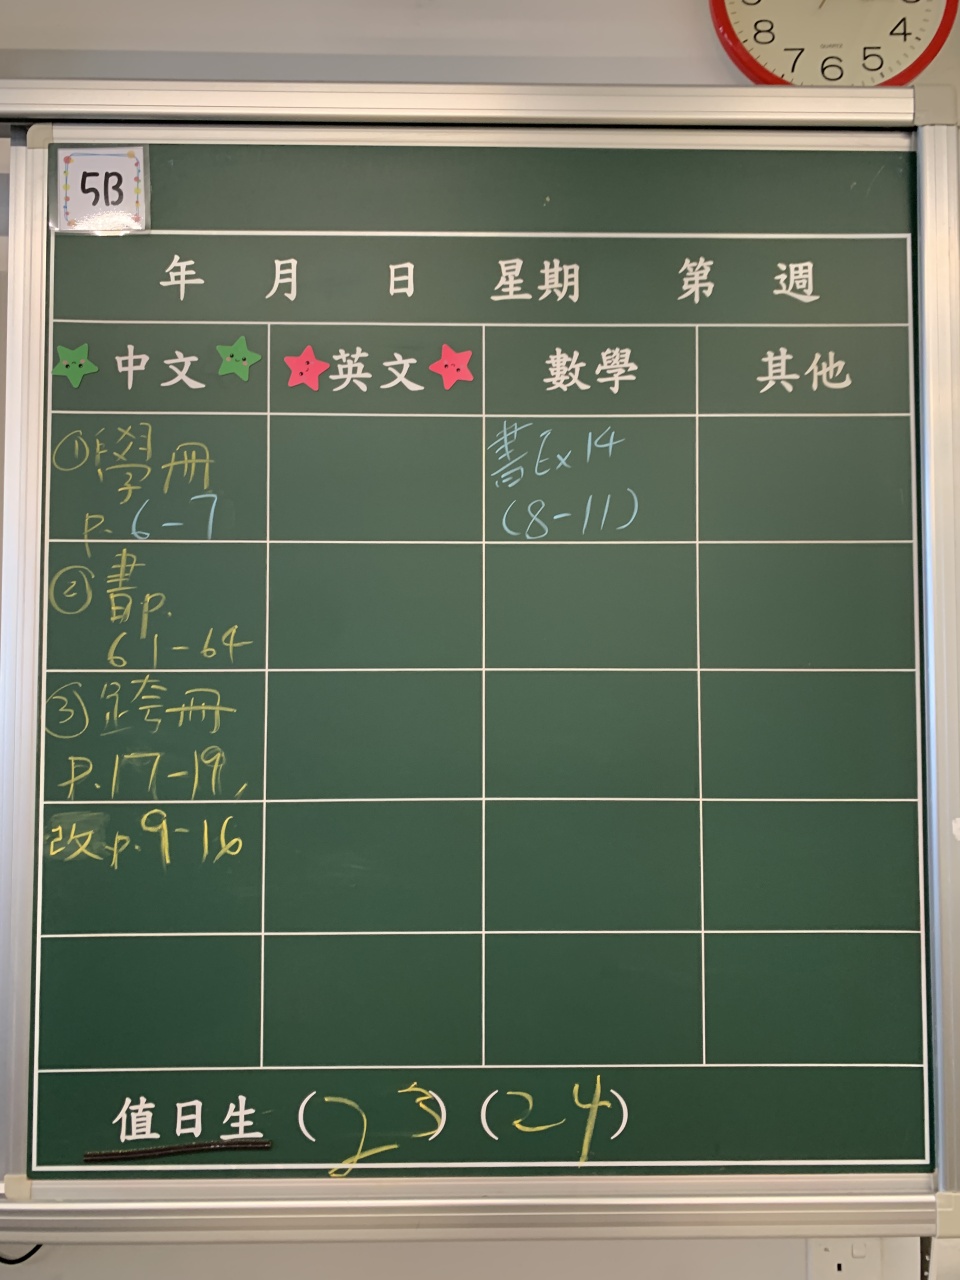 8 7 6 5 4
QUARTZ
5B
年 月 日 星期 第 週
中文 英文 數學 其他
①學冊
p. 6-7
書Ex 14
(8-11)
②書p.
61-64
③跨冊
P.17-19,
改p.9-16
值日生 (23) (24)